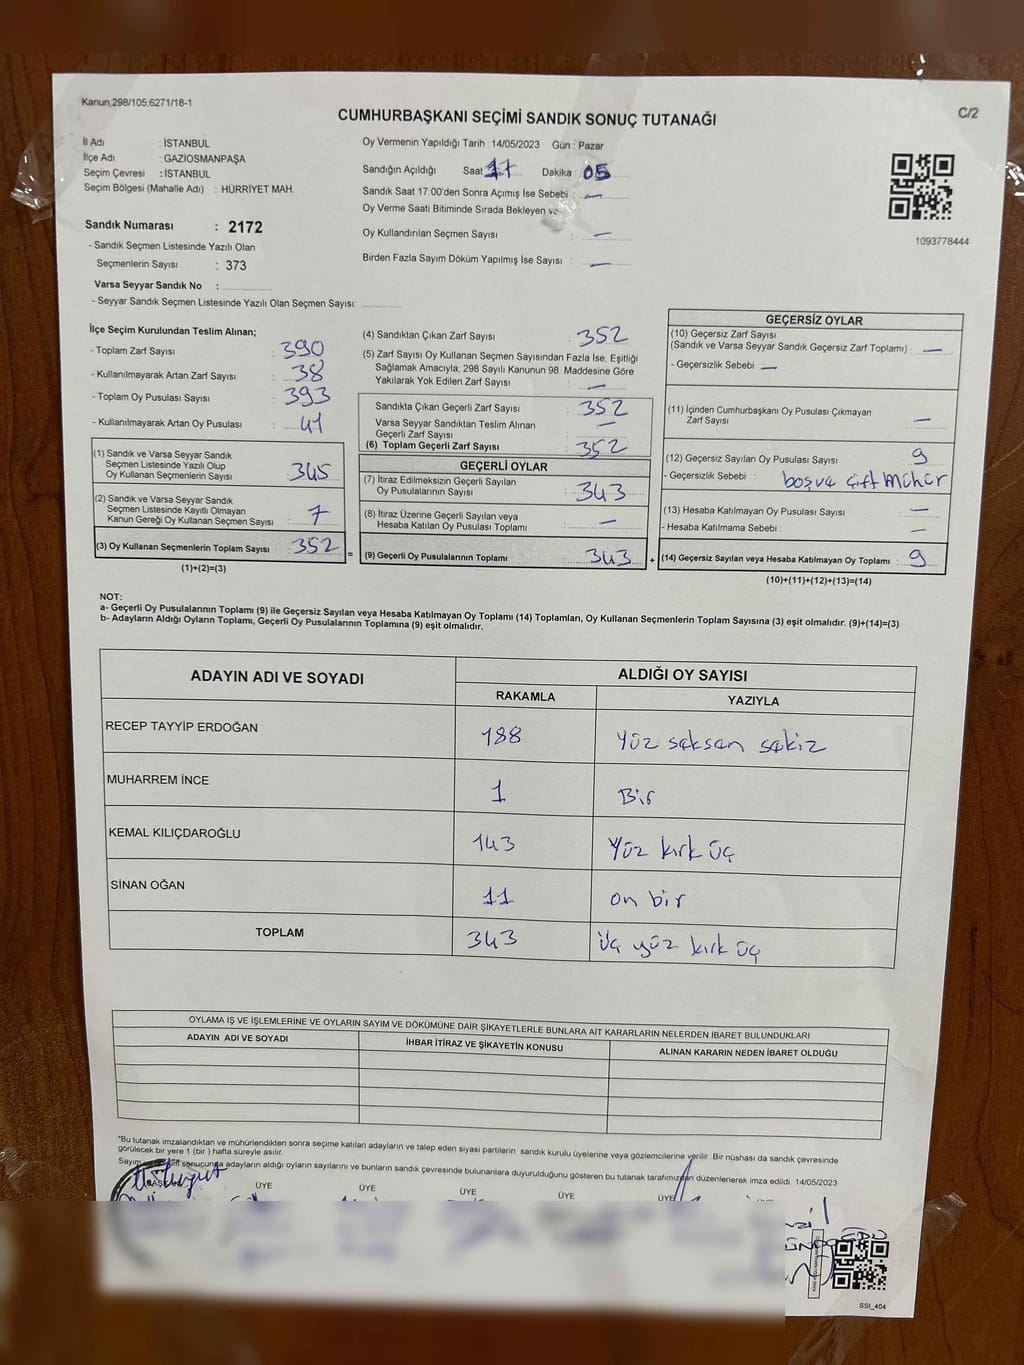 Kanun;298/105,6271/18-1
CUMHURBAŞKANI SEÇİMİ SANDIK SONUÇ TUTANAĞI
C/2
İl Adı : İSTANBUL
İlçe Adı : GAZİOSMANPAŞA
Seçim Çevresi : İSTANBUL
Seçim Bölgesi (Mahalle Adı) : HÜRRİYET MAH.
Sandık Numarası : 2172
- Sandık Seçmen Listesinde Yazılı Olan
Seçmenlerin Sayısı : 373
Varsa Seyyar Sandık No :
- Seyyar Sandık Seçmen Listesinde Yazılı Olan Seçmen Sayısı:
Oy Vermenin Yapıldığı Tarih : 14/05/2023 Gün : Pazar
Sandığın Açıldığı Saat 17 Dakika : 05
Sandık Saat 17:00'den Sonra Açımış İse Sebebi : —
Oy Verme Saati Bitiminde Sırada Bekleyen ve
Oy Kullandırılan Seçmen Sayısı : —
Birden Fazla Sayım Döküm Yapılmış İse Sayısı : —
1093778444
İlçe Seçim Kurulundan Teslim Alınan;
- Toplam Zarf Sayısı : 390
- Kullanılmayarak Artan Zarf Sayısı : 38
- Toplam Oy Pusulası Sayısı : 393
- Kullanılmayarak Artan Oy Pusulası : 41
(1) Sandık ve Varsa Seyyar Sandık
Seçmen Listesinde Yazılı Olup
Oy Kullanan Seçmenlerin Sayısı : 345
(2) Sandık ve Varsa Seyyar Sandık
Seçmen Listesinde Kayıtlı Olmayan
Kanun Gereği Oy Kullanan Seçmen Sayısı : 7
(3) Oy Kullanan Seçmenlerin Toplam Sayısı : 352 =
(1)+(2)=(3)
(4) Sandıktan Çıkan Zarf Sayısı : 352
(5) Zarf Sayısı Oy Kullanan Seçmen Sayısından Fazla İse, Eşitliği
Sağlamak Amacıyla; 298 Sayılı Kanunun 98. Maddesine Göre
Yakılarak Yok Edilen Zarf Sayısı : —
Sandıkta Çıkan Geçerli Zarf Sayısı : 352
Varsa Seyyar Sandıktan Teslim Alınan
Geçerli Zarf Sayısı : —
(6) Toplam Geçerli Zarf Sayısı : 352
GEÇERLİ OYLAR
(7) İtiraz Edilmeksizin Geçerli Sayılan
Oy Pusulalarının Sayısı : 343
(8) İtiraz Üzerine Geçerli Sayılan veya
Hesaba Katılan Oy Pusulası Toplamı : —
(9) Geçerli Oy Pusulalarının Toplamı : 343 +
GEÇERSİZ OYLAR
(10) Geçersiz Zarf Sayısı
(Sandık ve Varsa Seyyar Sandık Geçersiz Zarf Toplamı) : —
- Geçersizlik Sebebi : —
(11) İçinden Cumhurbaşkanı Oy Pusulası Çıkmayan
Zarf Sayısı : —
(12) Geçersiz Sayılan Oy Pusulası Sayısı : 9
- Geçersizlik Sebebi : boşve çift Mühür
(13) Hesaba Katılmayan Oy Pusulası Sayısı : —
- Hesaba Katılmama Sebebi : —
(14) Geçersiz Sayılan veya Hesaba Katılmayan Oy Toplamı : 9
(10)+(11)+(12)+(13)=(14)
NOT:
a- Geçerli Oy Pusulalarının Toplamı (9) ile Geçersiz Sayılan veya Hesaba Katılmayan Oy Toplamı (14) Toplamları, Oy Kullanan Seçmenlerin Toplam Sayısına (3) eşit olmalıdır. (9)+(14)=(3)
b- Adayların Aldığı Oyların Toplamı, Geçerli Oy Pusulalarının Toplamına (9) eşit olmalıdır.
ADAYIN ADI VE SOYADI ALDIĞI OY SAYISI
RAKAMLA YAZIYLA
RECEP TAYYİP ERDOĞAN 188 Yüz seksan sekiz
MUHARREM İNCE 1 Bir
KEMAL KILIÇDAROĞLU 143 Yüz kırk üç
SİNAN OĞAN 11 on bir
TOPLAM 343 üç yüz kırk üç
OYLAMA İŞ VE İŞLEMLERİNE VE OYLARIN SAYIM VE DÖKÜMÜNE DAİR ŞİKAYETLERLE BUNLARA AİT KARARLARIN NELERDEN İBARET BULUNDUKLARI
ADAYIN ADI VE SOYADI İHBAR İTİRAZ VE ŞİKAYETİN KONUSU ALINAN KARARIN NEDEN İBARET OLDUĞU
*Bu tutanak imzalandıktan ve mühürlendikten sonra seçime katılan adayların ve talep eden siyasi partilerin sandık kurulu üyelerine veya gözlemcilerine verilir. Bir nüshası da sandık çevresinde
görülecek bir yere 1 (bir) hafta süreyle asılır.
Sayım sonucunda adayların aldığı oyların sayılarını ve bunların sandık çevresinde bulunanlara duyurulduğunu gösteren bu tutanak tarafımızdan düzenlenerek imza edildi. 14/05/2023
ÜYE ÜYE ÜYE ÜYE ÜYE
SSI_404